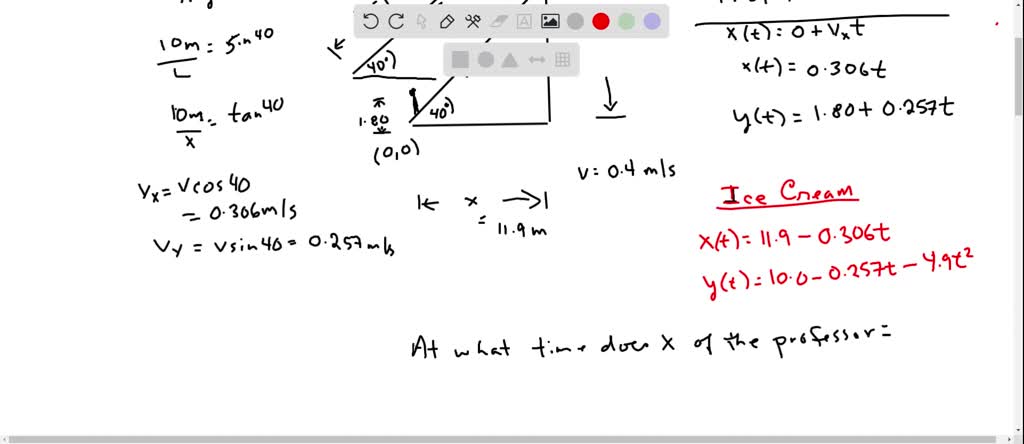 10m/L = sin 40
x(t) = 0 + Vx t
x(t) = 0.306t
y(t) = 1.80 + 0.257t
40°)
40°)
1.80
(0,0)
10m/x = tan 40
v = 0.4 m/s
Vx = v cos 40
= 0.306 m/s
Vy = v sin 40 = 0.257 m/s
x
= 11.9 m
Ice Cream
x(t) = 11.9 - 0.306t
y(t) = 10.0 - 0.257t - 4.9t²
At what time does x of the professor =